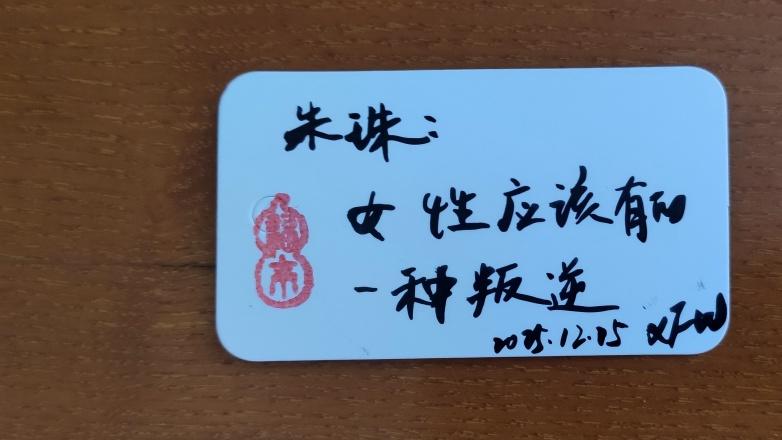 朱珠：
女性应该有的
一种叛逆
2025.12.15